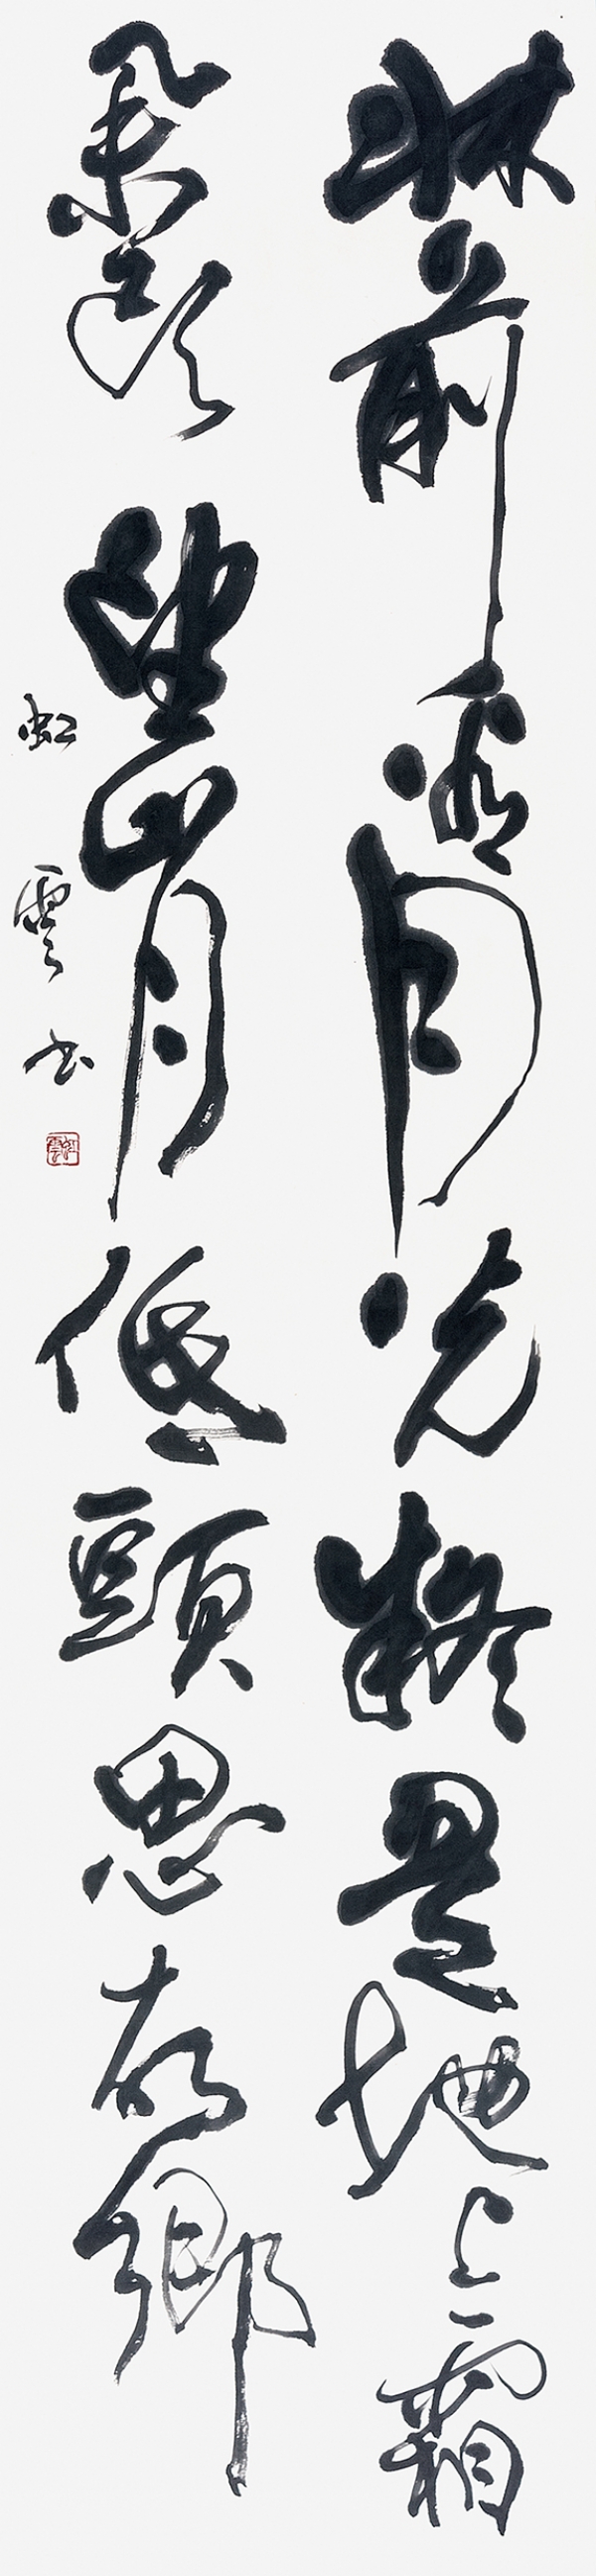 牀前看月光疑是地上霜
舉頭望山月低頭思故鄉
虹雲书